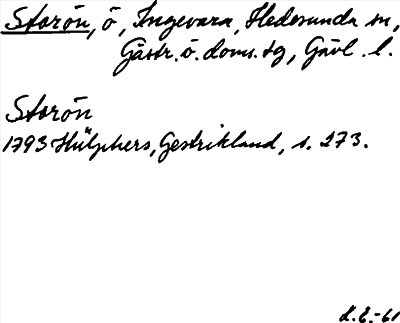 Storön, ö, Ingevara, Hedesunda sn,
Gästr. ö. doms. tg, Gävl. l.
Storön
1793 Hülphers, Gestrikland, s. 273.